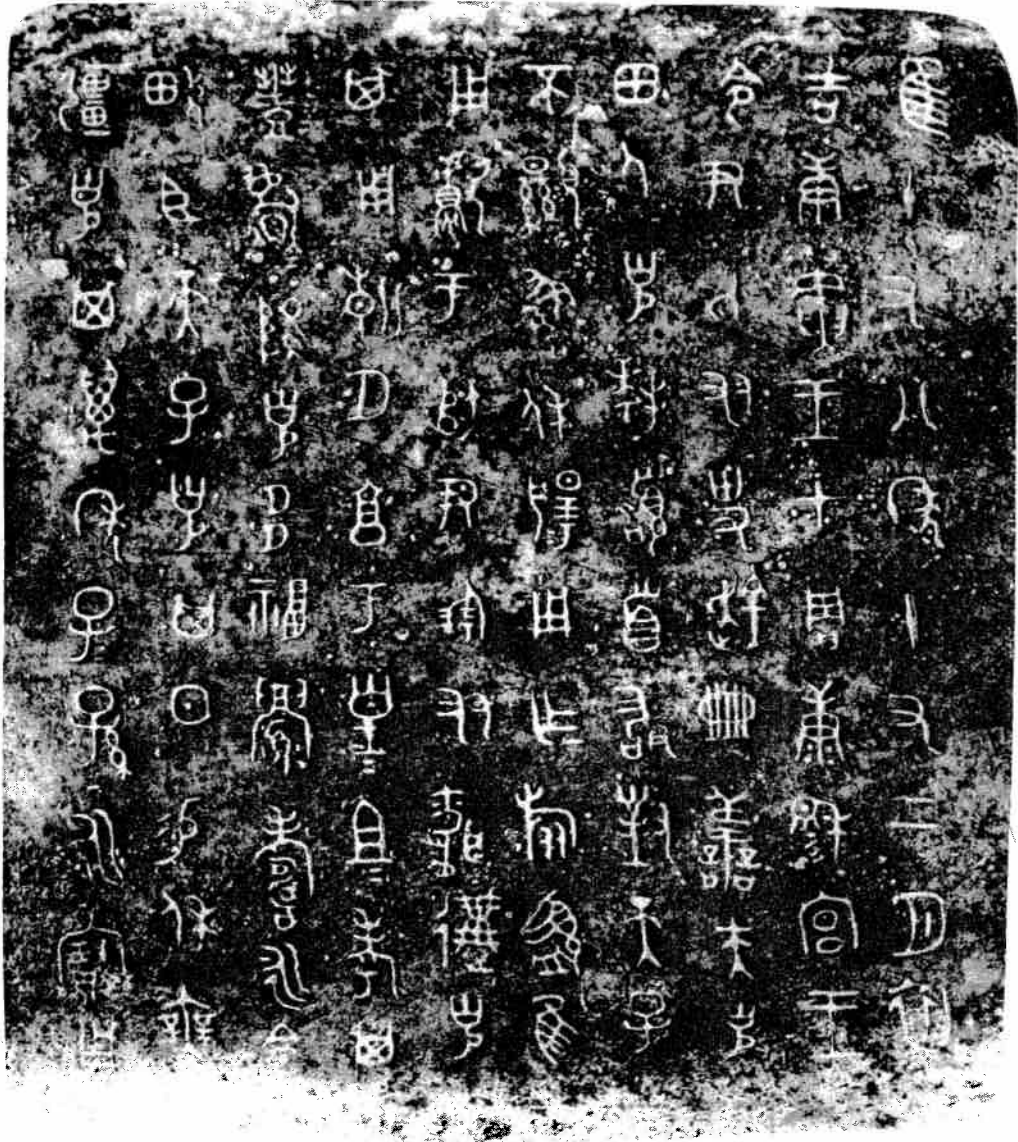 隹十又八年十又二月初
吉庚寅王才周康穆宮王
令尹氏友史趛典善夫克
田人克拜稽首敢對天子
不顯魯休揚用乍旅盨隹
用獻于師尹朋友婚遘克
其用朝夕享于皇=且=考=其
降克多福眉壽永令
畯臣天子克其日易休無
彊克其萬年子=孫=永寶用